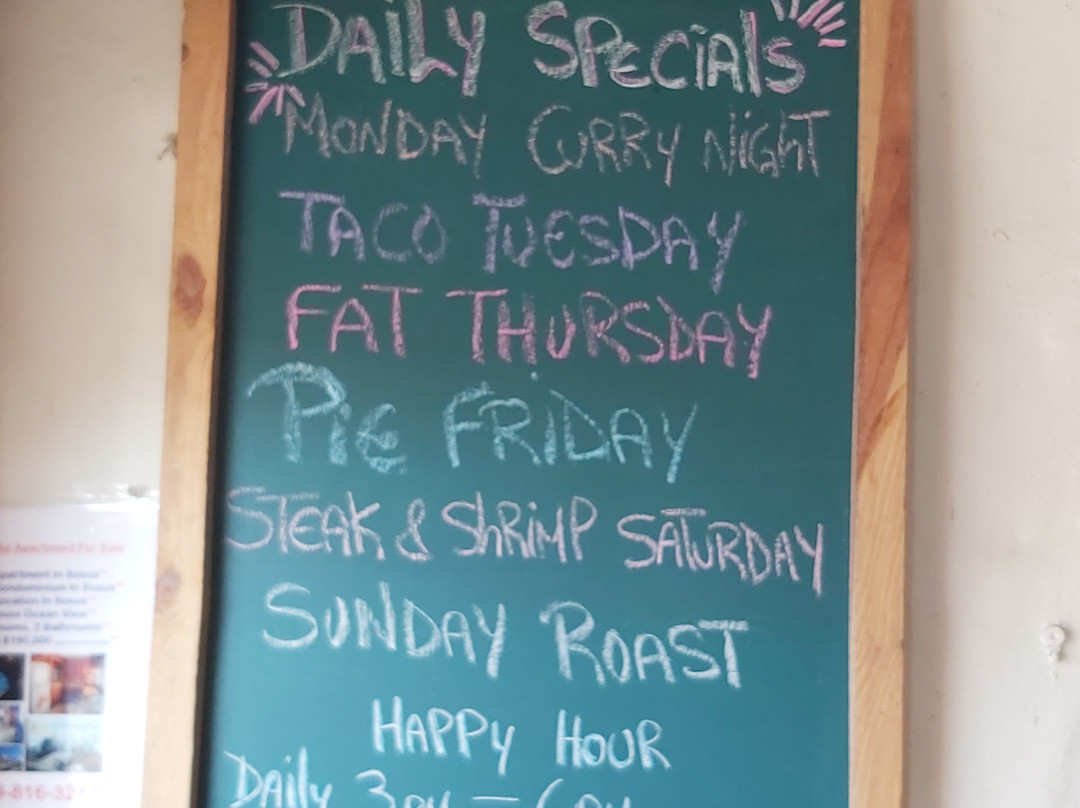 DAILY SPECIALS
MONDAY CURRY NIGHT
TACO TUESDAY
FAT THURSDAY
PIE FRIDAY
STEAK & SHRIMP SATURDAY
SUNDAY ROAST
HAPPY HOUR
Daily 3PM – 6PM
Apartment For Sale
partment In Sosua
ondominium In Sosua
ocation In Sosua
Ocean View
ooms, 2 Bathrooms
$190,000
9-816-32